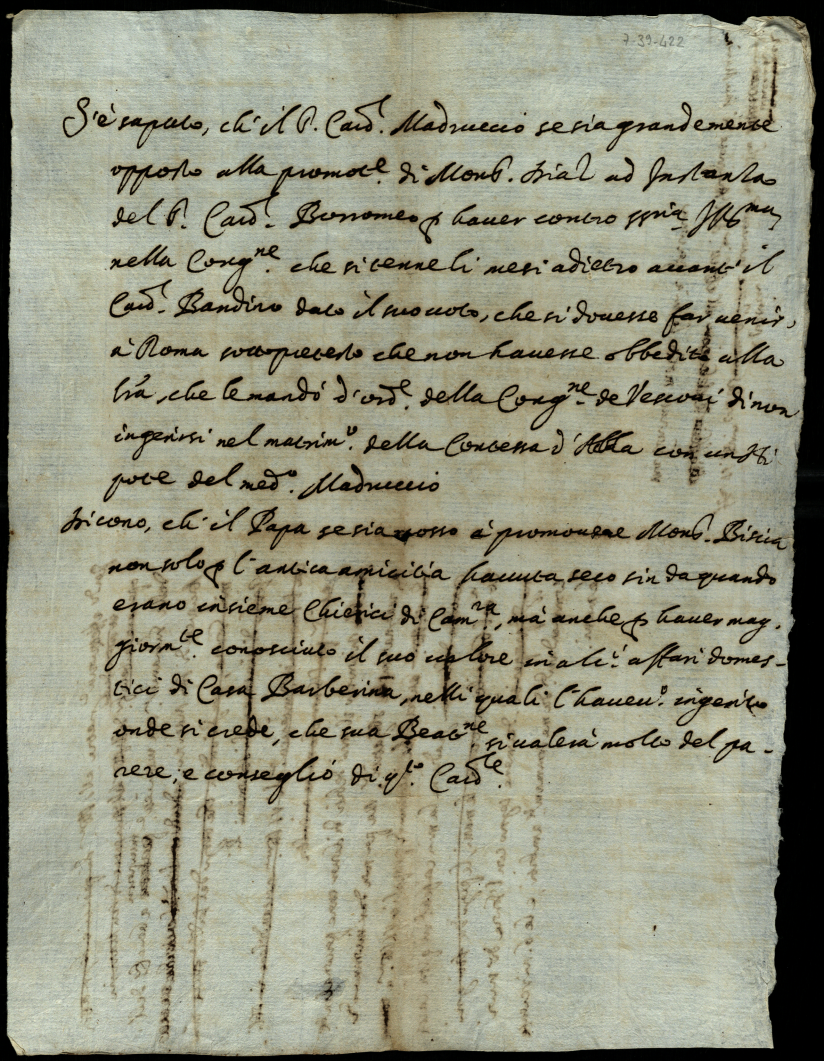 7-39-422
S'è saputo, ch'il S. Card.l Madruccio se sia grandemente
opposto alla promot.e di Mons. ad Instanza
del S. Card.l Borromeo p hauer contro Ill.mu
nella Cong.ne che si tenne li mesi adietro auant'il
Card.l Bandino dato il suo uoto, che si douesse far uenir,
à Roma sottopretesto che non hauesse obbedito alla
lrã, che le mandò d'ord.e della Cong.ne de Vescoui di non
ingerirsi nel matrim.o della Contessa d' con un Ni
pote del med.o Madruccio
Dicono, ch'il Papa se sia mosso à promouere Mons. Biscia
non solo p l'antica amicitia hauuta seco sin da quando
erano insieme Chierici di Cam.ra, mà anche p hauer mag.
giorm.te conosciuto il suo ualore in alc.i affari domes-
tici di Casa Barberina, nelli quali l'haueu.o ingerito
onde si crede, che sua Beat.ne si ualerà molto del pa-
rere, e conseglio di q.to Card.le